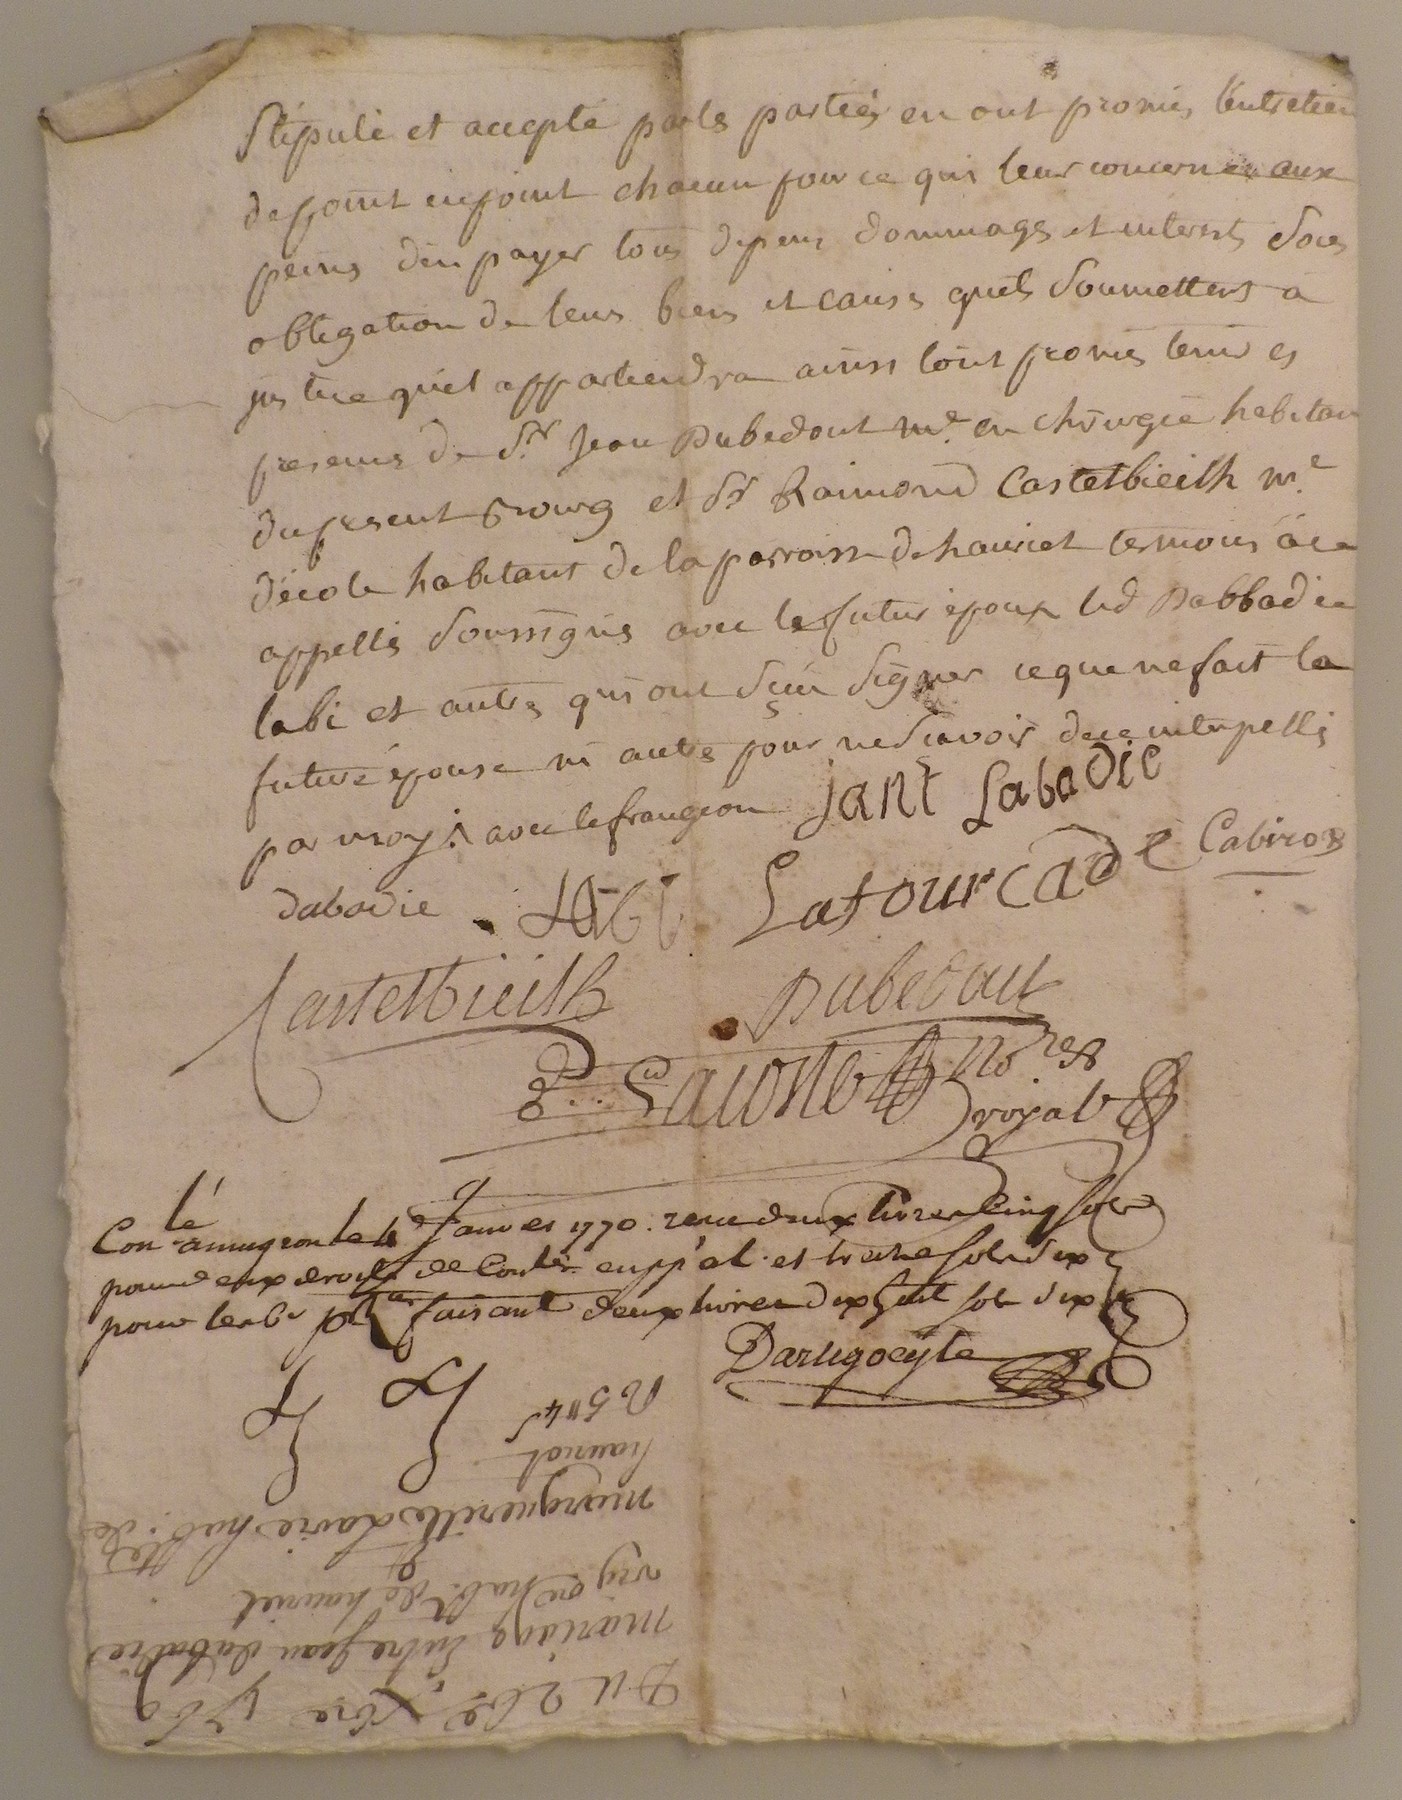 Stipulé et accepté par les parties en ont promis l'entretien
de point en point chacun pour ce qui leur concerne aux
peines d'en payer tous depens dommages et interets sous
obligation de leurs biens et causes quels soumettent a
justice quil appartiendra ainsi tout promis tenir es
presences de Sr. Jean Dubedout me. en chirurgie habitan
du present Bourg et Sr Raimond Castetbieilh me
d'école habitant de la parroisse de hauriet temoins a ce
appellés soussignés avec le futur époux led Dabbadie
labi et autres qui ont sçeu signer ce que ne fait la
future épouse ni autres pour ne sçavoir de ce interpellés
par moy. avec lefrangeon jant Labadie
dabadie . LABi Latourcade Cabiro
Castetbieilh Dubedout
Lacoste nores
royal
Conlé a mugron le Janvier 1770. recu deux livres cinq sols
pour deux droits de Conle en pp'al. et treize sols six
pour les faisant deux livres dixhuit sols six
Darligoeyte
Du 26e xbre 1769
mariage Entre jean dabadie
hab. de hauriet
margueritte Lavie habte. de
hauriet
R 5# 4s